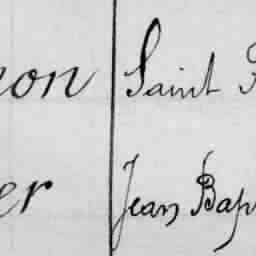 on Saint
er Jean Bap